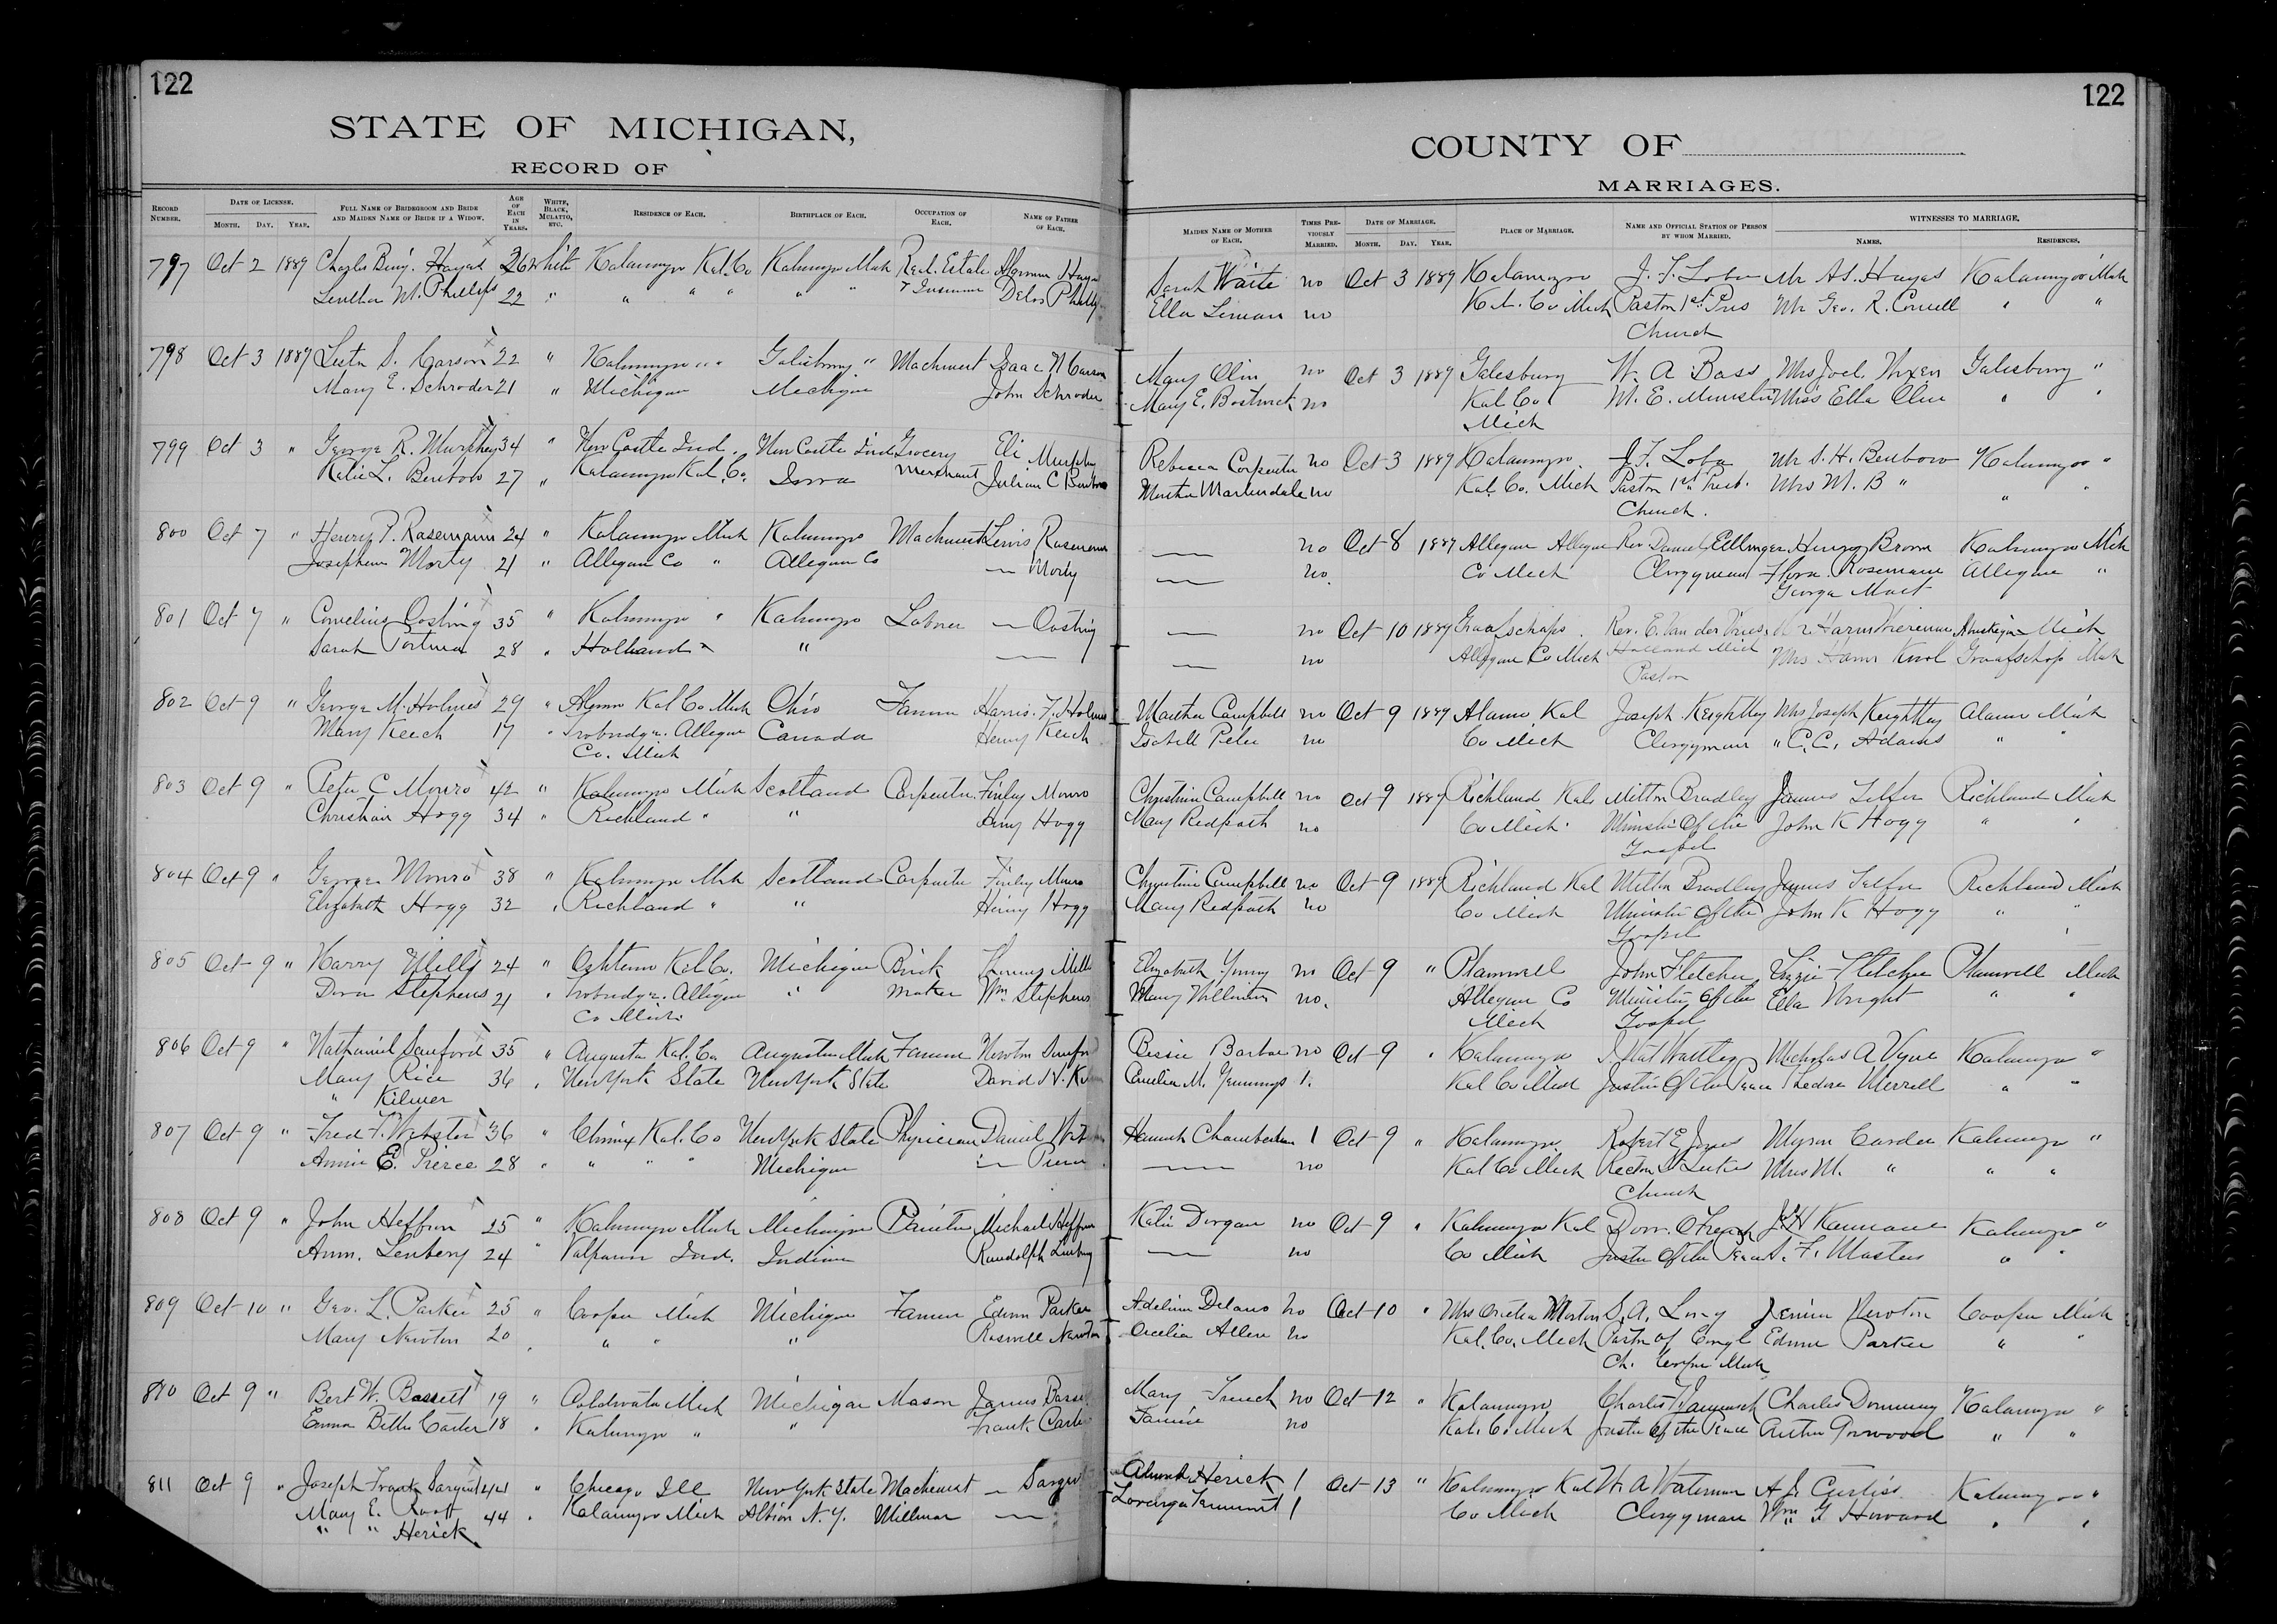 122
STATE OF MICHIGAN,
RECORD OF
RECORD NUMBER. DATE OF LICENSE. MONTH. DAY. YEAR. FULL NAME OF BRIDEGROOM AND BRIDE AND MAIDEN NAME OF BRIDE IF A WIDOW. AGE OF EACH IN YEARS. WHITE, BLACK, MULATTO, ETC. RESIDENCE OF EACH. BIRTHPLACE OF EACH. OCCUPATION OF EACH. NAME OF FATHER OF EACH.
797 Oct 2 1889 Charles Benj. Hayes 26 White Kalamazoo Kal. Co Kalamazoo Mich Real Estate
M. Phillips 22 " " " " " " Delos Phillips
798 Oct 3 1889 S. Carson 22 " Kalamazoo " " Galesburg " Machinist Isaac N Carson
Mary E. Schroder 21 " Michigan Michigan John Schroder
799 Oct 3 " George R. Murphey 34 " New Castle Ind. New Castle Ind Grocery Eli Murphy
Katie L. Benbow 27 " Kalamazoo Kal. Co. Iowa Merchant Julian C Benbow
800 Oct 7 " Henry P. Rasemann 24 " Kalamazoo Mich Kalamazoo Machinist Lewis
Josephine Morty 21 " Allegan Co " Allegan Co — Morty
801 Oct 7 " Cornelius Oosting 35 " Kalamazoo " Kalamazoo Laborer — Oosting
Sarah 28 " Holland " " —
802 Oct 9 " George M. Holmes 29 " Alamo Kal Co Mich Ohio Farmer Harris. F. Holmes
Mary Keech 17 " Trobridge. Allegan Canada Henry Keech
Co. Mich
803 Oct 9 " Peter C Monro 42 " Kalamazoo Mich Scotland Carpenter Finley Monro
Christian Hogg 34 " Richland " " Henry Hogg
804 Oct 9 " George Monro 38 " Kalamazoo Mich Scotland Carpenter Finley Monro
Elizabeth Hogg 32 " Richland " " Henry Hogg
805 Oct 9 " Harry Mills 24 " Oshtemo Kal Co. Michigan Brick Thomas Mills
Dora Stephens 21 " Trobridge. Allegan " Maker Wm Stephens
Co Mich.
806 Oct 9 " Nathaniel Sanford 35 " Augusta Kal. Co. Augusta Mich Farmer Newton Sanford
Mary Rice 36 " New York State New York State David
" Kilmer
807 Oct 9 " Fred F. Webster 36 " Climax Kal. Co New York State Physician Daniel
Annie E. Pierce 28 " " " " Michigan — Pierce
808 Oct 9 " John Heffron 25 " Kalamazoo Mich Michigan Michael Heffron
Lenbery 24 " Valparaiso Ind. Indiana Randolph
809 Oct 10 " Geo. L. Parker 25 " Cooper Mich Michigan Farmer Edwin Parker
Mary Newton 20 " " " " Roswell Newton
810 Oct 9 " Bert W. Bassett 19 " Coldwater Mich Michigan Mason James
Emma Carter 18 " Kalamazoo " " Frank
811 Oct 9 " Joseph Frank Sargent 44 " Chicago Ill New York State Machinist —
Mary E. Roott 44 " Kalamazoo Mich Albion N.Y. —
" " Herick
122
COUNTY OF
MARRIAGES.
MAIDEN NAME OF MOTHER OF EACH. TIMES PREVIOUSLY MARRIED. DATE OF MARRIAGE. MONTH. DAY. YEAR. PLACE OF MARRIAGE. NAME AND OFFICIAL STATION OF PERSON BY WHOM MARRIED. WITNESSES TO MARRIAGE. NAMES. RESIDENCES.
Sarah Waite no Oct 3 1889 Kalamazoo J. F. Loba Mr A S. Hayes Kalamazoo Mich
Ella no Kal. Co Mich Pastor 1st Pres Mr Geo. R. " "
Church
Mary Olin no Oct 3 1889 Galesburg W. A Bass Mrs Joel Galesburg "
Mary E. Bostwick no Kal Co M. E. Minister Miss Ella Olin " "
Mich
Rebecca Carpenter no Oct 3 1889 Kalamazoo J. F. Loba Mr S. H. Benbow Kalamazoo "
Martha Martindale no Kal. Co. Mich Pastor 1st Pres. Mrs M. B " " "
Church.
— no Oct 8 1889 Allegan Allegan Rev Daniel Ellinger Henry Brown Kalamazoo Mich
— no. Co Mich Clergyman Flora Rosemann Allegan "
George
— no Oct 10 1889 Graafschap. Rev. E. Van der Vries Muskegon Mich
— no Allegan Co Mich Holland Mich Mrs Knol Graafschap Mich
Pastor
Martha Campbell no Oct 9 1889 Alamo Kal Joseph Keightley Mrs Joseph Keightley Alamo Mich
no Co Mich Clergyman " C. C. Adams " "
Christina Campbell no Oct 9 1889 Richland Kal Milton Bradley James Telfer Richland Mich
Mary Redpath no Co Mich. Minister of the John K Hogg " "
Gospel
Christina Campbell no Oct 9 1889 Richland Kal Milton Bradley James Telfer Richland Mich
Mary Redpath no Co Mich Minister of the John K Hogg " "
Gospel
Elizabeth no Oct 9 " Plainwell John Fletcher Lizzie Fletcher Plainwell Mich
Mary no. Allegan Co Minister of the Ella Wright " "
Mich Gospel
Bessie no Oct 9 " Kalamazoo Kalamazoo "
M. Jennings 1. Kal Co Mich Justice of the Peace Merrell " "
Hannah Chamberlain 1 Oct 9 " Kalamazoo Robert E Jones Myron Kalamazoo "
— no Kal Co Mich Rector St Lukes Mrs M. " " "
Church
Katie Dorgan no Oct 9 " Kalamazoo Kal Kalamazoo "
— no Co Mich Justice of the Peace F. Masters " "
Adeline Delano no Oct 10 " S. A. Long Newton Cooper Mich
Allen no Kal. Co. Mich Pastor of Congl Parker " "
Ch. Cooper Mich
Mary French no Oct 12 " Kalamazoo Charles Charles Kalamazoo "
Fannie no Kal. Co Mich Justice of the Peace " "
Herick 1 Oct 13 " Kalamazoo Kal W. A Waterman A. J. Curtiss Kalamazoo "
1 Co Mich Clergyman Wm G Howard " "